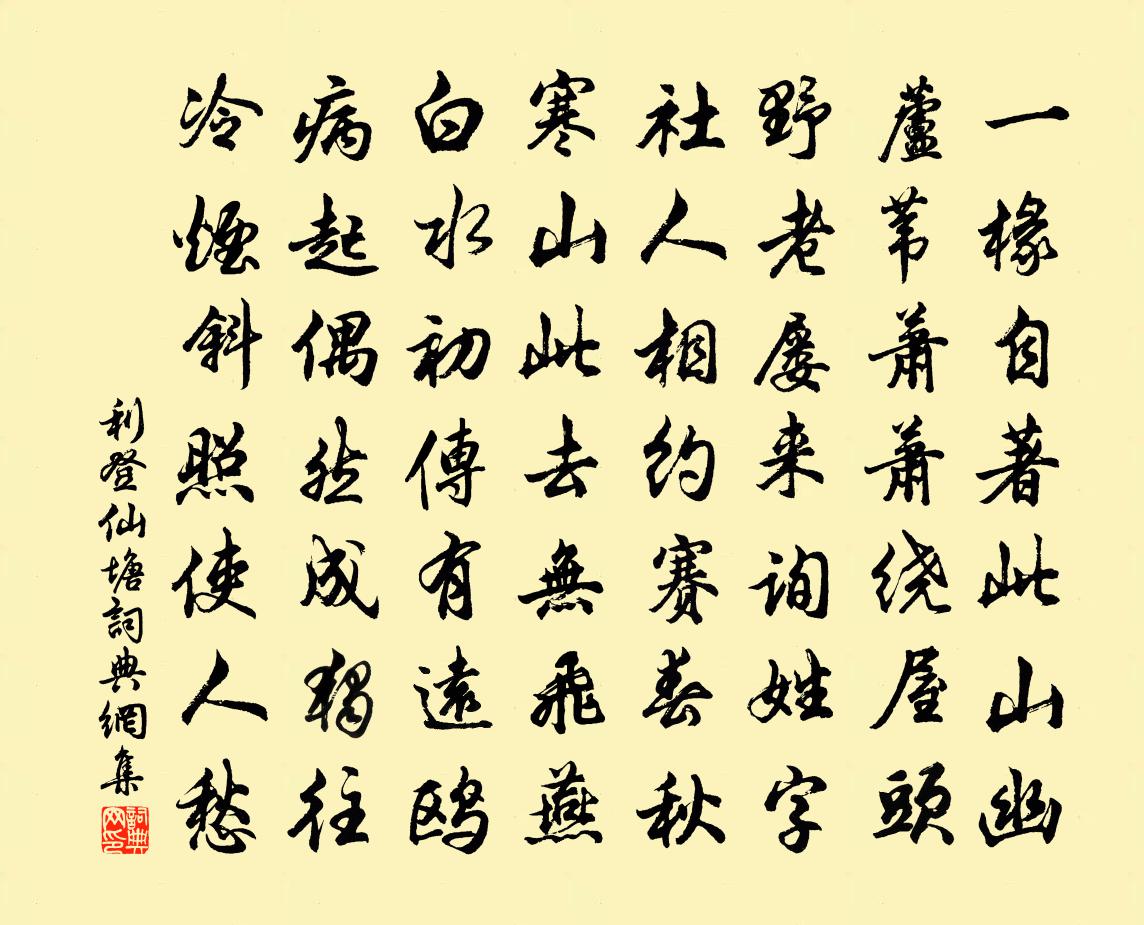 一椽自著此山幽
蘆葦蕭蕭绕屋頭
野老屡来询姓字
社人相约賽春秋
寒山此去無飛燕
白水初傳有遠鸥
病起偶然成獨往
冷煙斜照使人愁
利登仙塘詞典網集
詞典
网印